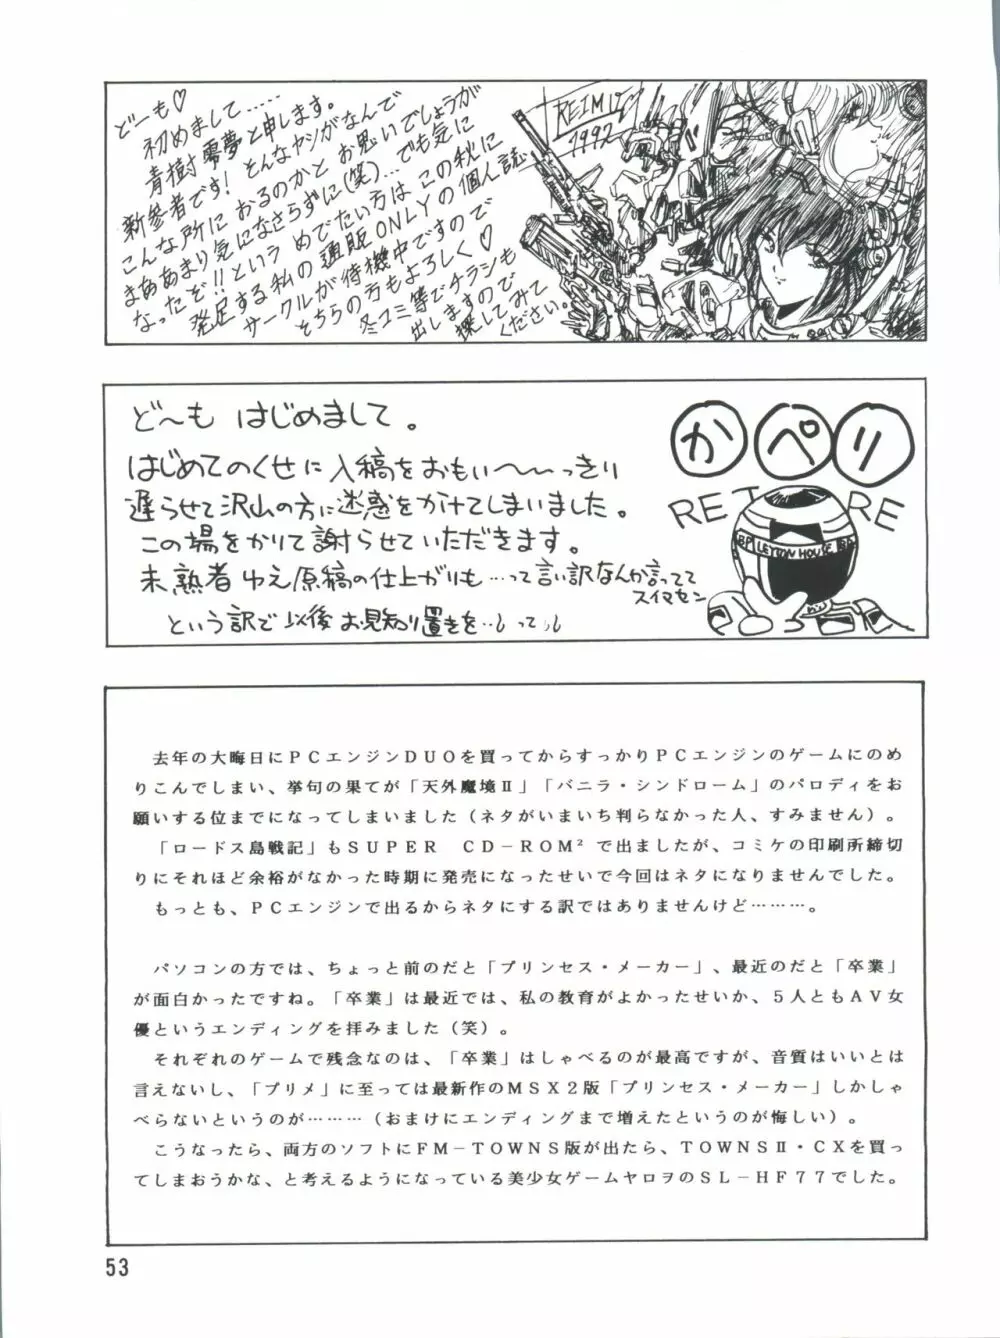 どーも♡
初めまして……
青樹零夢と申します。
新参者です!こんなヤツがなんで
こんな所におるのかとお思いでしょうが
まああまり気になさらずに(笑)…でも気に
なったぞ!!というめでたい方はこの秋に
発足する私の通販ONLYの個人誌
サークルが待機中ですので
そちらの方もよろしく♡
冬コミ等でチラシも
出しますので
探してみて
ください。
1992
ど〜も はじめまして。
はじめてのくせに入稿をおもい〜〜っきり
遅らせて沢山の方に迷惑をかけてしまいました。
この場をかりて謝らせていただきます。
未熟者ゆえ原稿の仕上がりも…って言い訳なんか言ってて
スイマセン
という訳で以後お見知り置きを…
かぺり
LEYTON HOUSE
去年の大晦日にPCエンジンDUOを買ってからすっかりPCエンジンのゲームにのめ
りこんでしまい、挙句の果てが「天外魔境Ⅱ」「バニラ・シンドローム」のパロディをお
願いする位までになってしまいました(ネタがいまいち判らなかった人、すみません)。
「ロードス島戦記」もSUPER CD−ROM²で出ましたが、コミケの印刷所締切
りにそれほど余裕がなかった時期に発売になったせいで今回はネタになりませんでした。
もっとも、PCエンジンで出るからネタにする訳ではありませんけど………。
パソコンの方では、ちょっと前のだと「プリンセス・メーカー」、最近のだと「卒業」
が面白かったですね。「卒業」は最近では、私の教育がよかったせいか、5人ともAV女
優というエンディングを拝みました(笑)。
それぞれのゲームで残念なのは、「卒業」はしゃべるのが最高ですが、音質はいいとは
言えないし、「プリメ」に至っては最新作のMSX2版「プリンセス・メーカー」しかしゃ
べらないというのが………(おまけにエンディングまで増えたというのが悔しい)。
こうなったら、両方のソフトにFM−TOWNS版が出たら、TOWNSⅡ・CXを買っ
てしまおうかな、と考えるようになっている美少女ゲームヤロヲのSL−HF77でした。
53